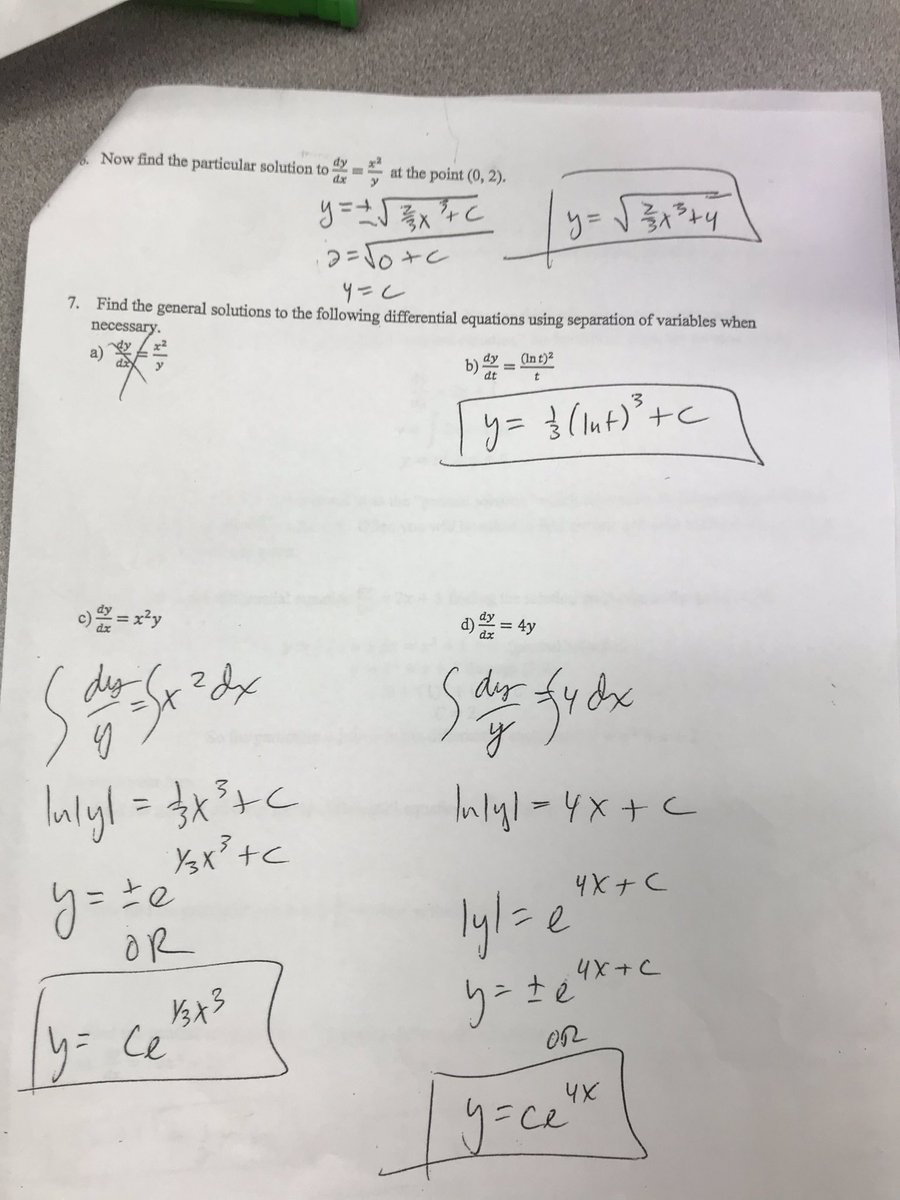 6. Now find the particular solution to dy/dx = x²/y at the point (0, 2).
y = ±√(⅔x³ + C)
2 = √(0 + C)
4 = C
y = √(⅔x³ + 4)
7. Find the general solutions to the following differential equations using separation of variables when
necessary.
a) dy/dx = x²/y
b) dy/dt = (ln t)²/t
y = ⅓(ln t)³ + C
c) dy/dx = x²y
∫ dy/y = ∫ x² dx
ln|y| = ⅓x³ + C
y = ± e^(1/3x³ + C)
OR
y = Ce^(1/3x³)
d) dy/dx = 4y
∫ dy/y = ∫ 4 dx
ln|y| = 4x + C
|y| = e^(4x + C)
y = ± e^(4x + C)
OR
y = Ce^(4x)